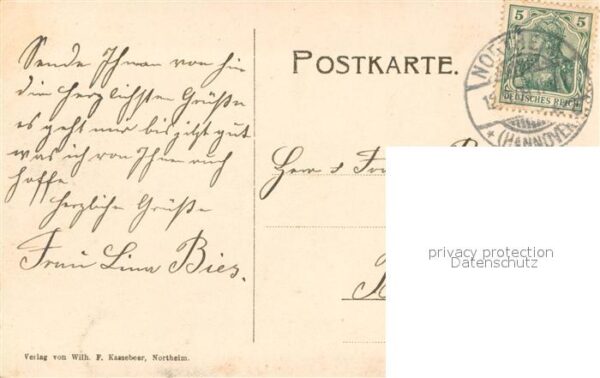 Sende Ihnen von hir
die herzlichsten Grüße
es geht mir bis jetzt gut
was ich von Ihnen auch
hoffe
herzliche Grüße
Frau Lina Bies.
Verlag von Wilh. F. Kassebeer, Northeim.
POSTKARTE.
5 5
DEUTSCHES REICH
(HANNOVER)
Herr
privacy protection
Datenschutz